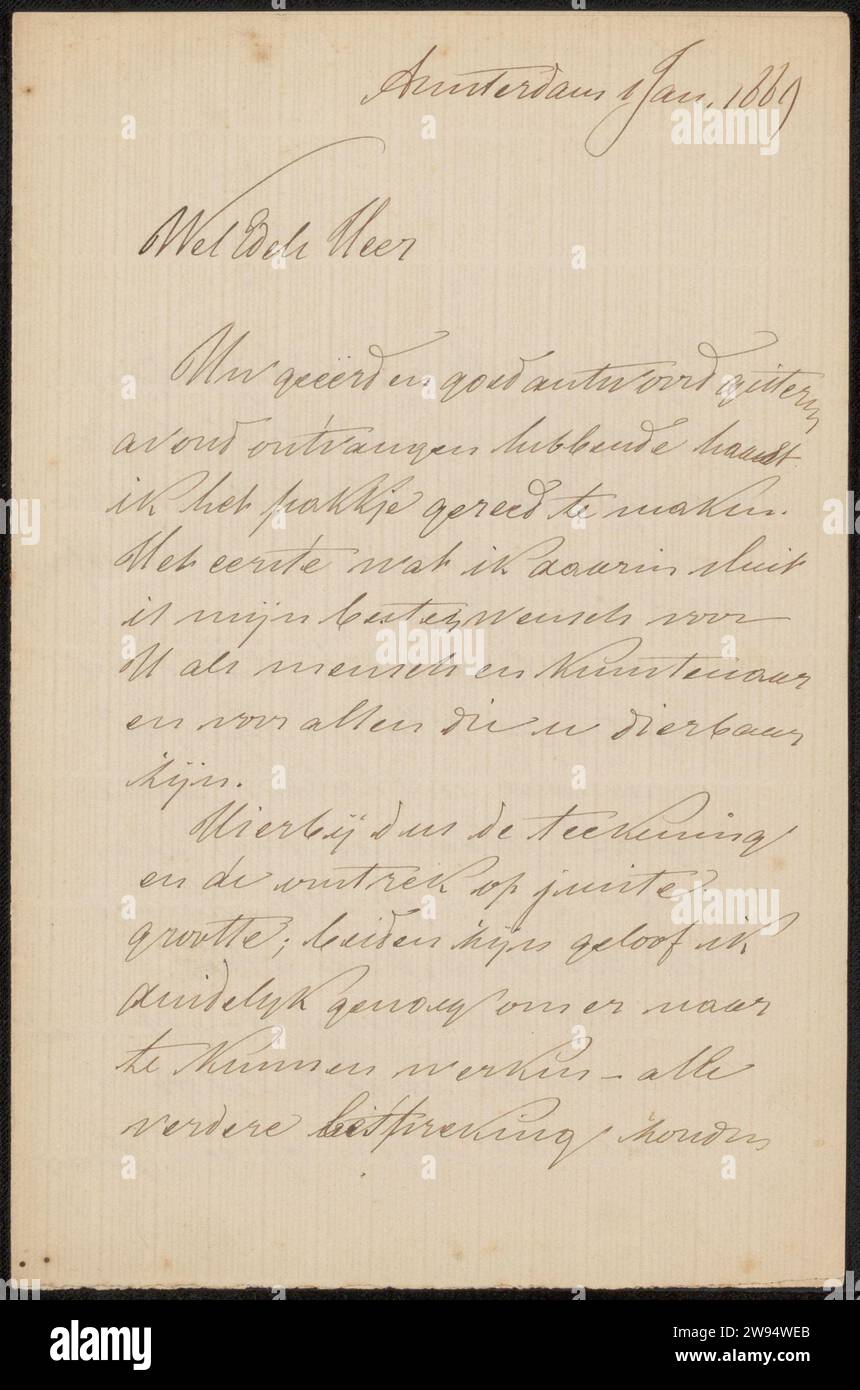 Amsterdam 1 Jan. 1889
WelEdele Heer
Uw geëerd en goed antwoord gisteren
avond ontvangen hebbende haast
ik het pakkje gereed te maken.
Het eerste wat ik daarin sluit
is mijn beste wensch voor
U als mensch en Kunstenaar
en voor allen die u dierbaar
zijn.
Hierbij dus de teekening
en de omtrek op juiste
grootte; beiden zijn geloof ik
duidelijk genoeg om er naar
te kunnen werken – alle
verdere bespreking zouden
alamy
Image ID: 2W94WEB
www.alamy.com